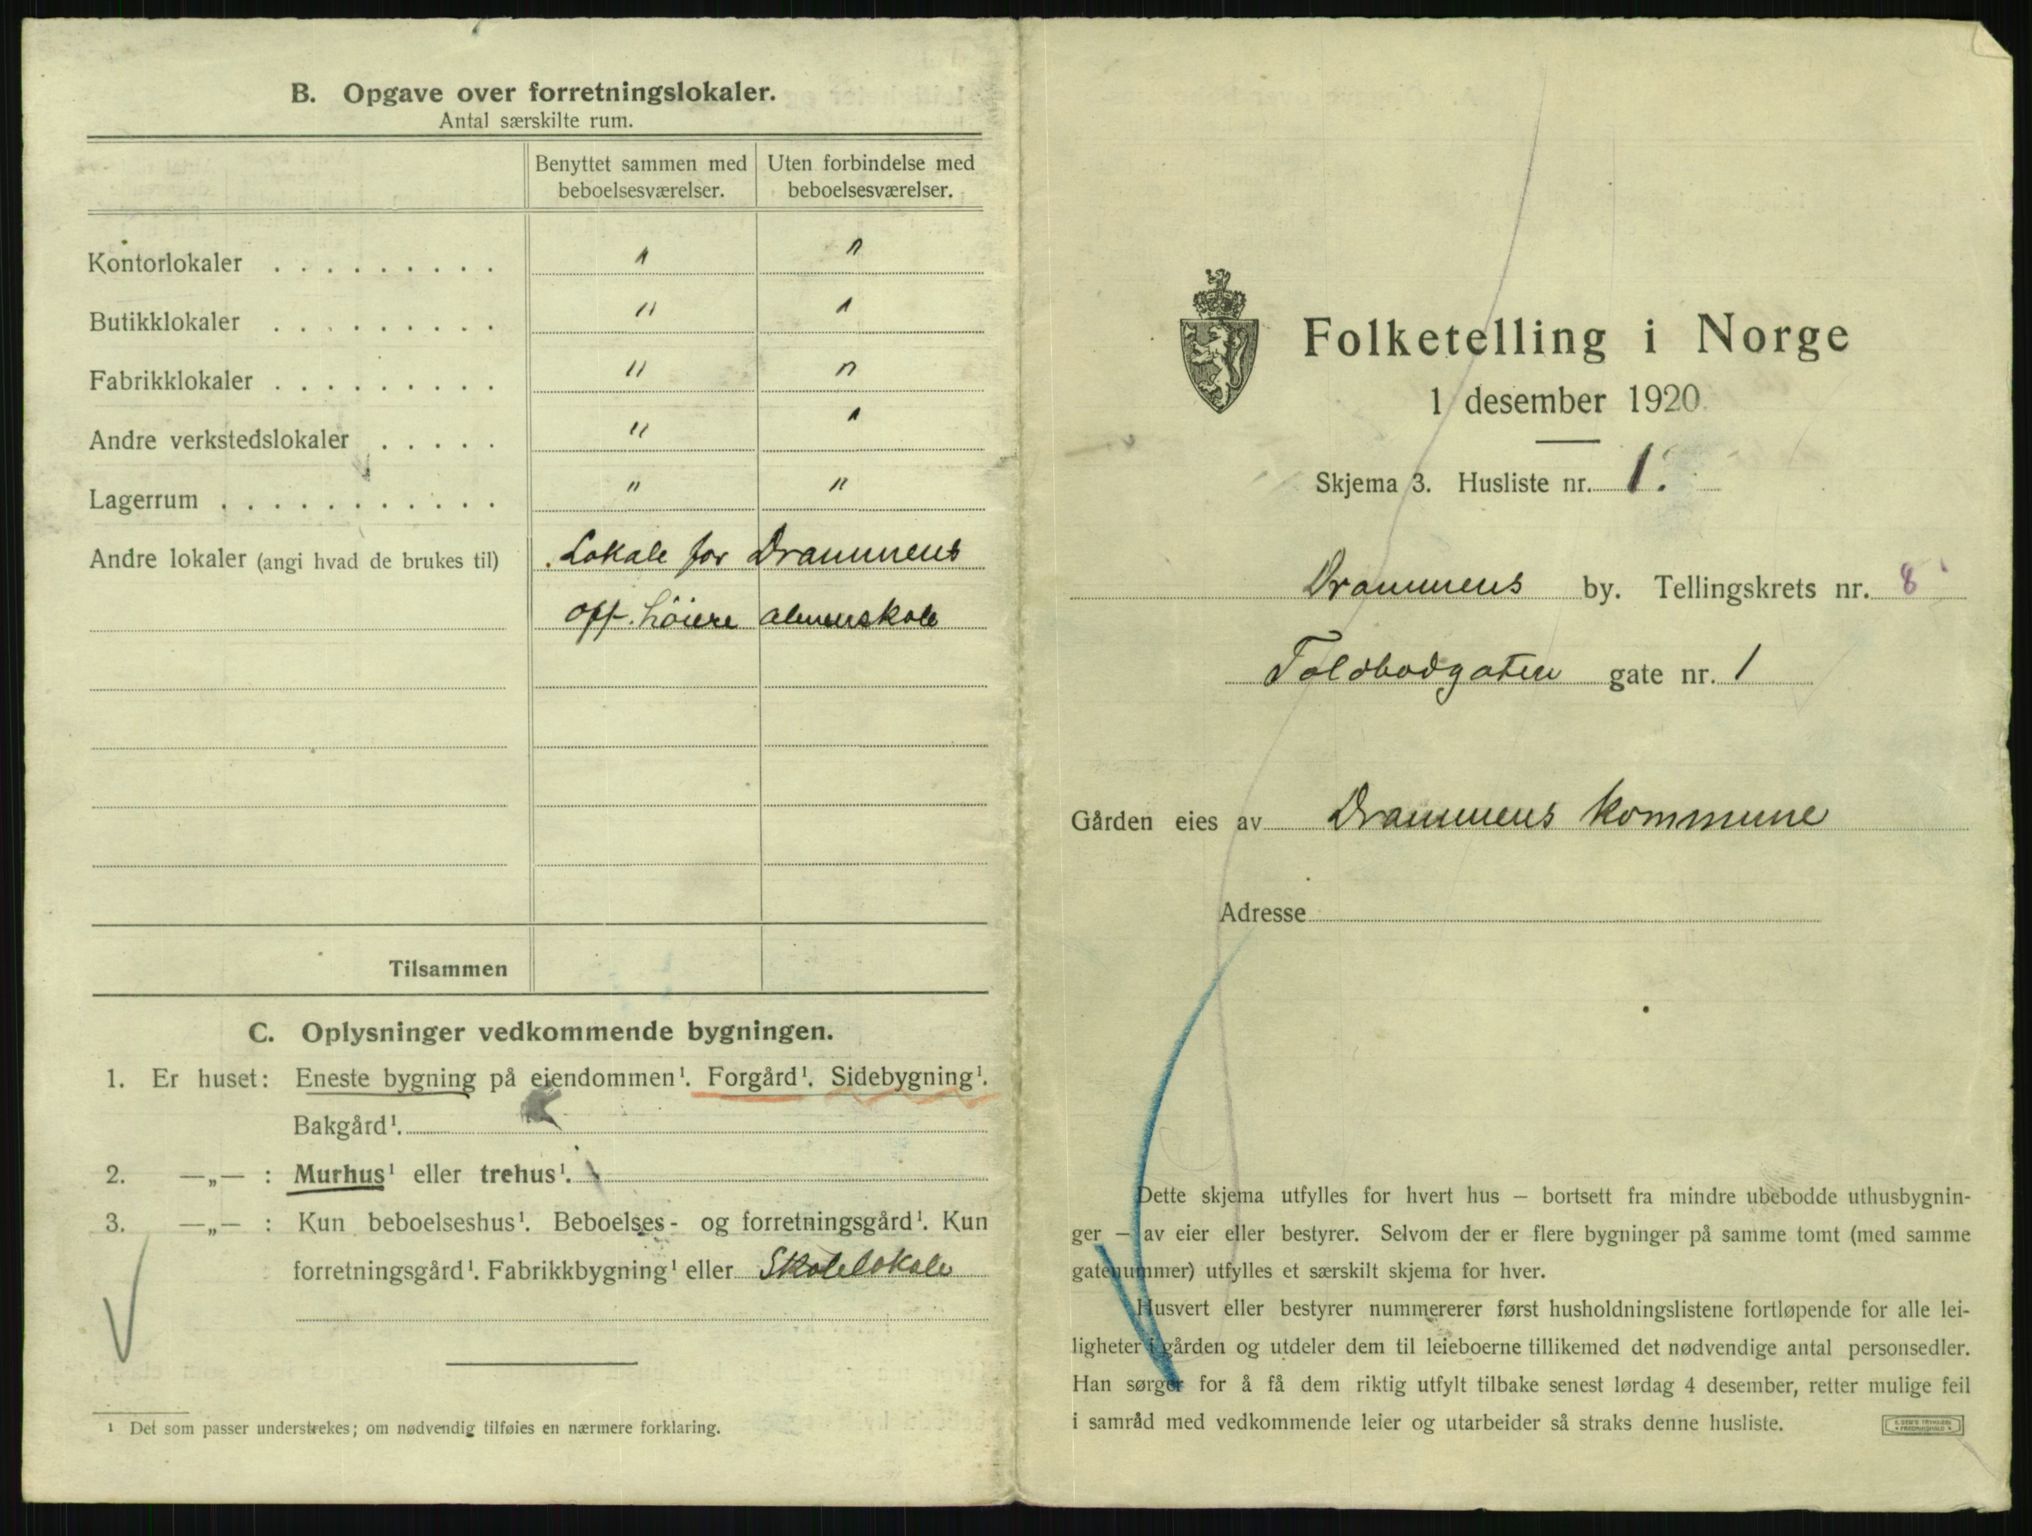 B. Opgave over forretningslokaler.
Antal særskilte rum.
Benyttet sammen med beboelsesværelser.
Uten forbindelse med beboelsesværelser.
Kontorlokaler . . . . . . . . . " "
Butikklokaler . . . . . . . . . " "
Fabrikklokaler . . . . . . . . . " "
Andre verkstedslokaler . . . . . " "
Lagerrum . . . . . . . . . . . " "
Andre lokaler (angi hvad de brukes til) Lokale for Drammens
off. höiere almenskole
Tilsammen
C. Oplysninger vedkommende bygningen.
1. Er huset: Eneste bygning på eiendommen¹. Forgård¹. Sidebygning¹.
Bakgård¹.
2. —„— : Murhus¹ eller trehus¹.
3. —„— : Kun beboelseshus¹. Beboelses- og forretningsgård¹. Kun
forretningsgård¹. Fabrikkbygning¹ eller Skolelokale
¹ Det som passer understrekes; om nødvendig tilføies en nærmere forklaring.
Folketelling i Norge
1 desember 1920
Skjema 3. Husliste nr. 1.
Drammens by. Tellingskrets nr. 8
Toldbodgaten gate nr. 1
Gården eies av Drammens kommune
Adresse
Dette skjema utfylles for hvert hus – bortsett fra mindre ubebodde uthusbygnin-
ger – av eier eller bestyrer. Selvom der er flere bygninger på samme tomt (med samme
gatenummer) utfylles et særskilt skjema for hver.
Husvert eller bestyrer nummererer først husholdningslistene fortløpende for alle lei-
ligheter i gården og utdeler dem til leieboerne tillikemed det nødvendige antal personsedler.
Han sørger for å få dem riktig utfylt tilbake senest lørdag 4 desember, retter mulige feil
i samråd med vedkommende leier og utarbeider så straks denne husliste.